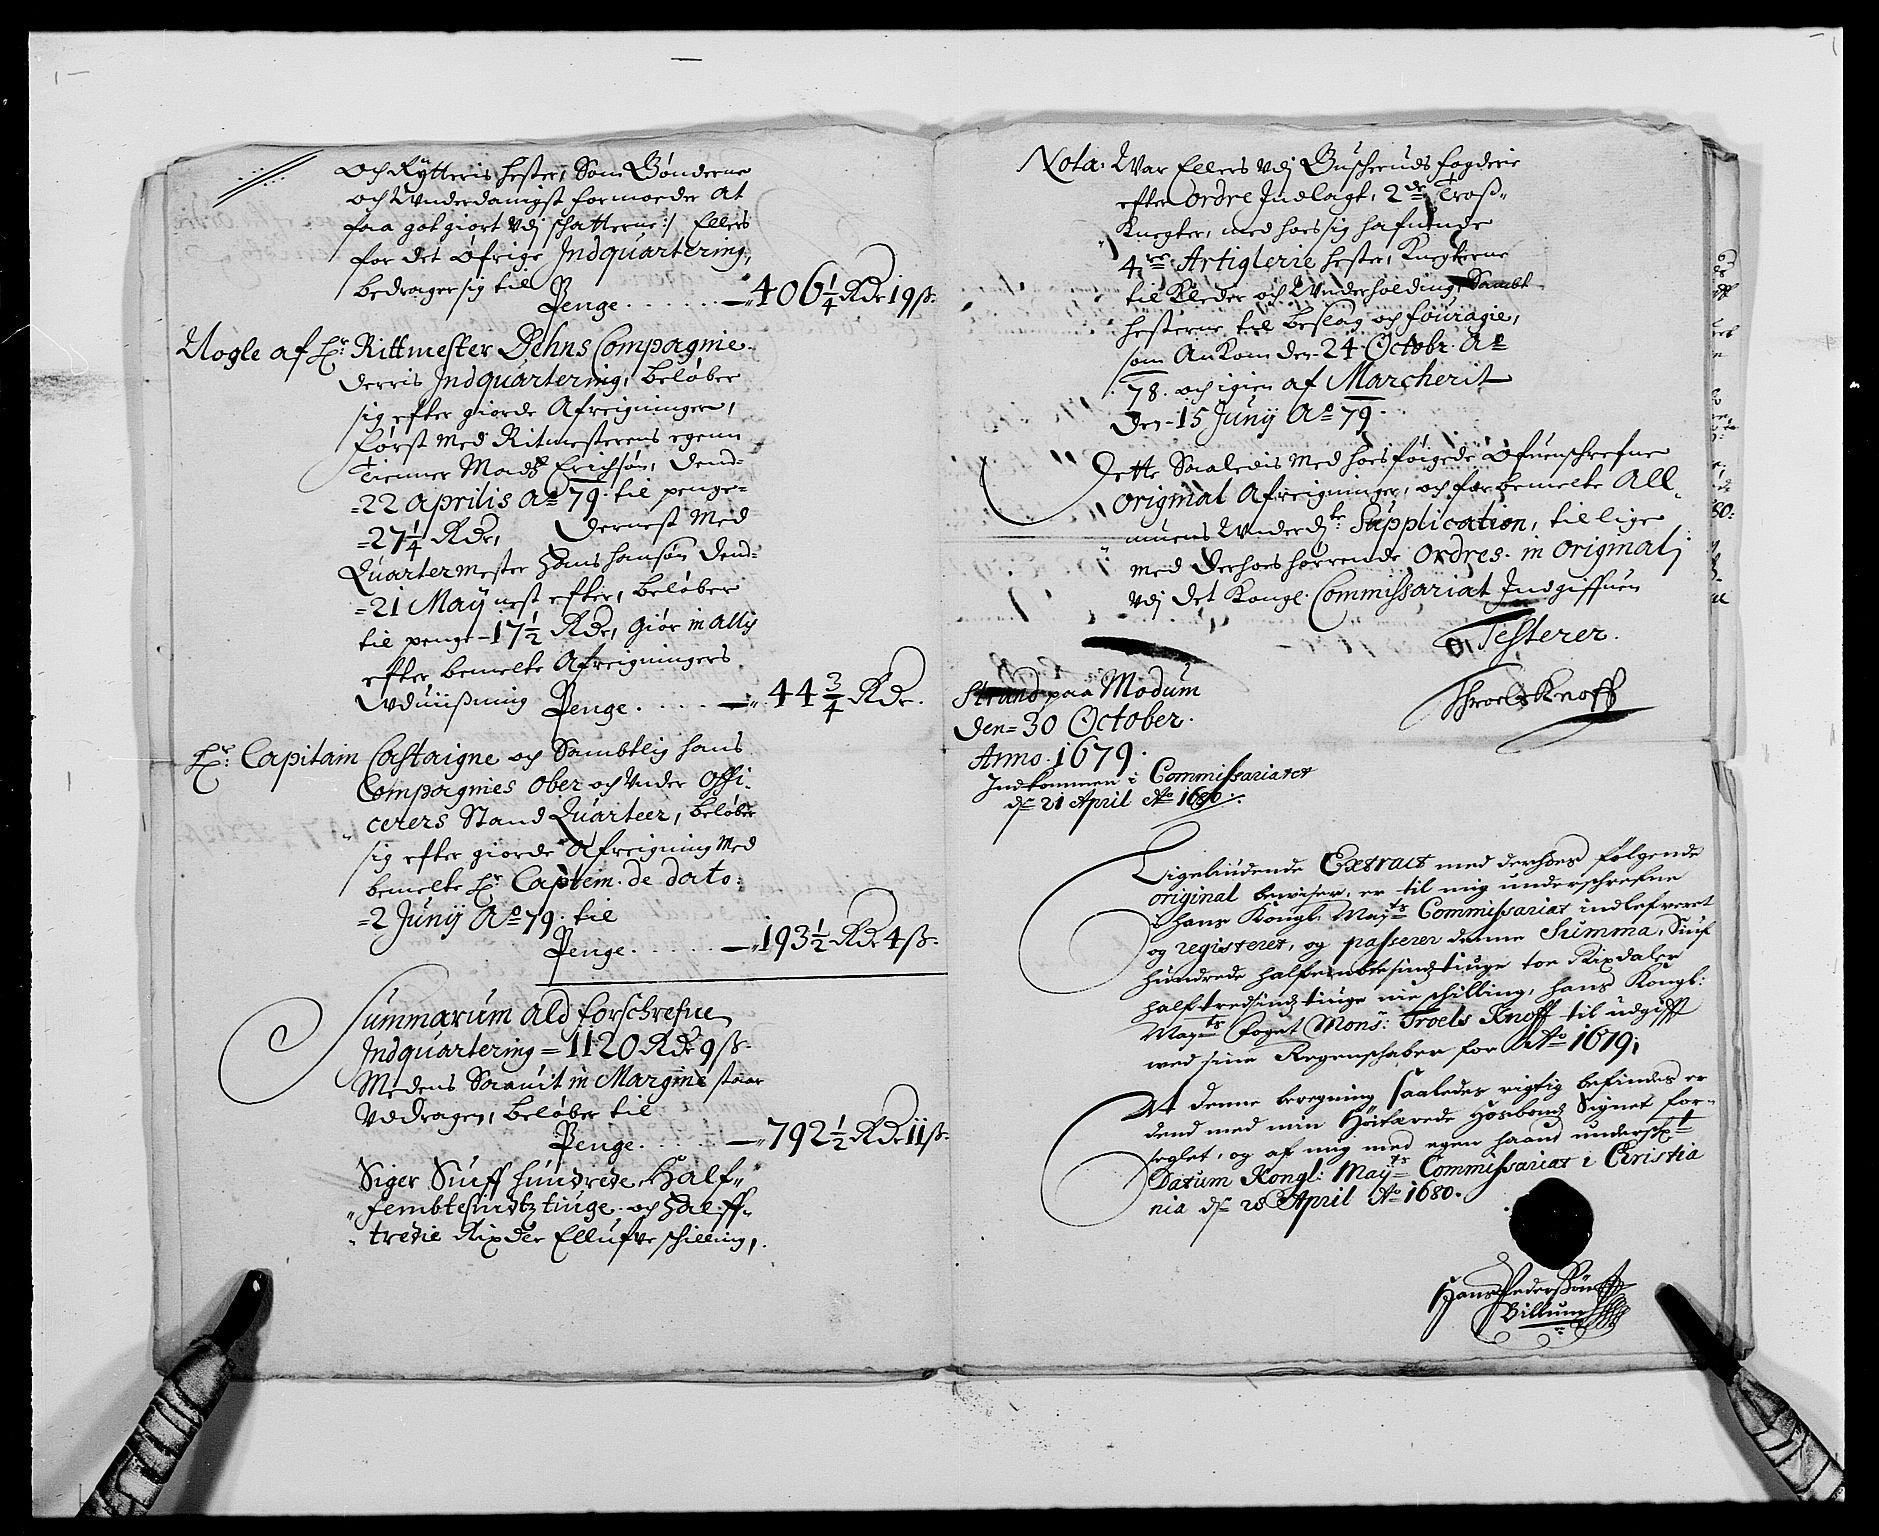 och Rÿtteris hester, Som Bønderne
och Vnderdanigst formoeder At
faa gotgiort vdj schatterne :/ Ellers
for det Øfrige Indquartering,
bedrager sig til
Penge . . . . . . — 406 1/4 Rdr 19 ß.
Nogle af Hr. Rittmester Dehns Compagnie
derris Indquartering, beløber
sig efter giorde Afreigninger,
først med Ritmesterens egenn
Tienner Madtz Erichsøn, Dend-
=22 aprilis Ao 79. til penge=
=27 1/4 Rdr, Dernest Med
Quartermester Hans hansøn Dend=
=21 Maÿ nest efter, beløber
til penge - 17 1/2 Rdr, Giør in alliß
efter bemelte Afreigningers
Vdviißning Penge . . . . . — 44 3/4 Rdr.
Hr. Capitain Castaigne och Sambtlig hans
Compagnies Ober och Vnder Offi-
cerers Stand Quarteer, beløber
sig efter giorde Afreigning Med
bemelte Hr. Captein. de dato:
=2 Junÿ Ao 79. til
Penge . . . . . — 193 1/2 Rdr 4 ß.
Summarum Ald forschrefne
Indquartering = 1120 Rdr 9 ß.
Medens Saauit in Margine staar
Vddragen, beløber til
Penge . . . . . — 792 1/2 Rdr 11 ß.
Siger Siuff hundrede Half-
fembtesindtztiuge och Halff-
tredie Rixdr Ellufve schilling,
Nota: Var Ellers vdj Buscheruds fogderie
efter Ordre Indlagt, 2de Troß-
Knegter, med hoes sig hafuende
4re Artiglerie hester, Knegterne
til Kleder och Vnderholding, Sambt
hesterne til beslag och fouragie,
som Ankom den 24 Octobr. Ao
78. och igien af Marcherit
Den 15 Junÿ Ao 79.
Dette Saaledis med hoesføigede Ofuenschrefne
Original Afreigninger, och forbemelte All-
muens Vnderdte Supplication, tillige
med derhoes hørrende Ordres in originalj
vdj det Kongl. Commissariat Indgiffuen
Testerer.
Strand paa Modum
Den 30 October.
Anno 1679.
Throels Knoff
Indkommen i Commissariatet
dn 21 April Ao 1680.
Ligeliudende Extract med derhoes følgende
original beviser, er til mig underschrefne
i hans Kongl. Mayts Commissariat indlefveret
og registeret, og passerer denne Summa, Siuf
hundrede halfembtesindztiuge toe Rixdaler
halftredsindztiuge nie schilling, hans Kongl:
Mayts foget Monsr: Troels Knoff til udgifft
ved sine Regenschaber for Ao 1679,
At denne beregning saaledes rigtig befindes er
dend med min Høitærede Hosbondz Signet for-
seglet, og af mig med egen haand underschr:
Datum Kongl: Mayts Commissariat i Christia
nia dn 28 April Ao 1680.
Hans Pederßøn
Billum